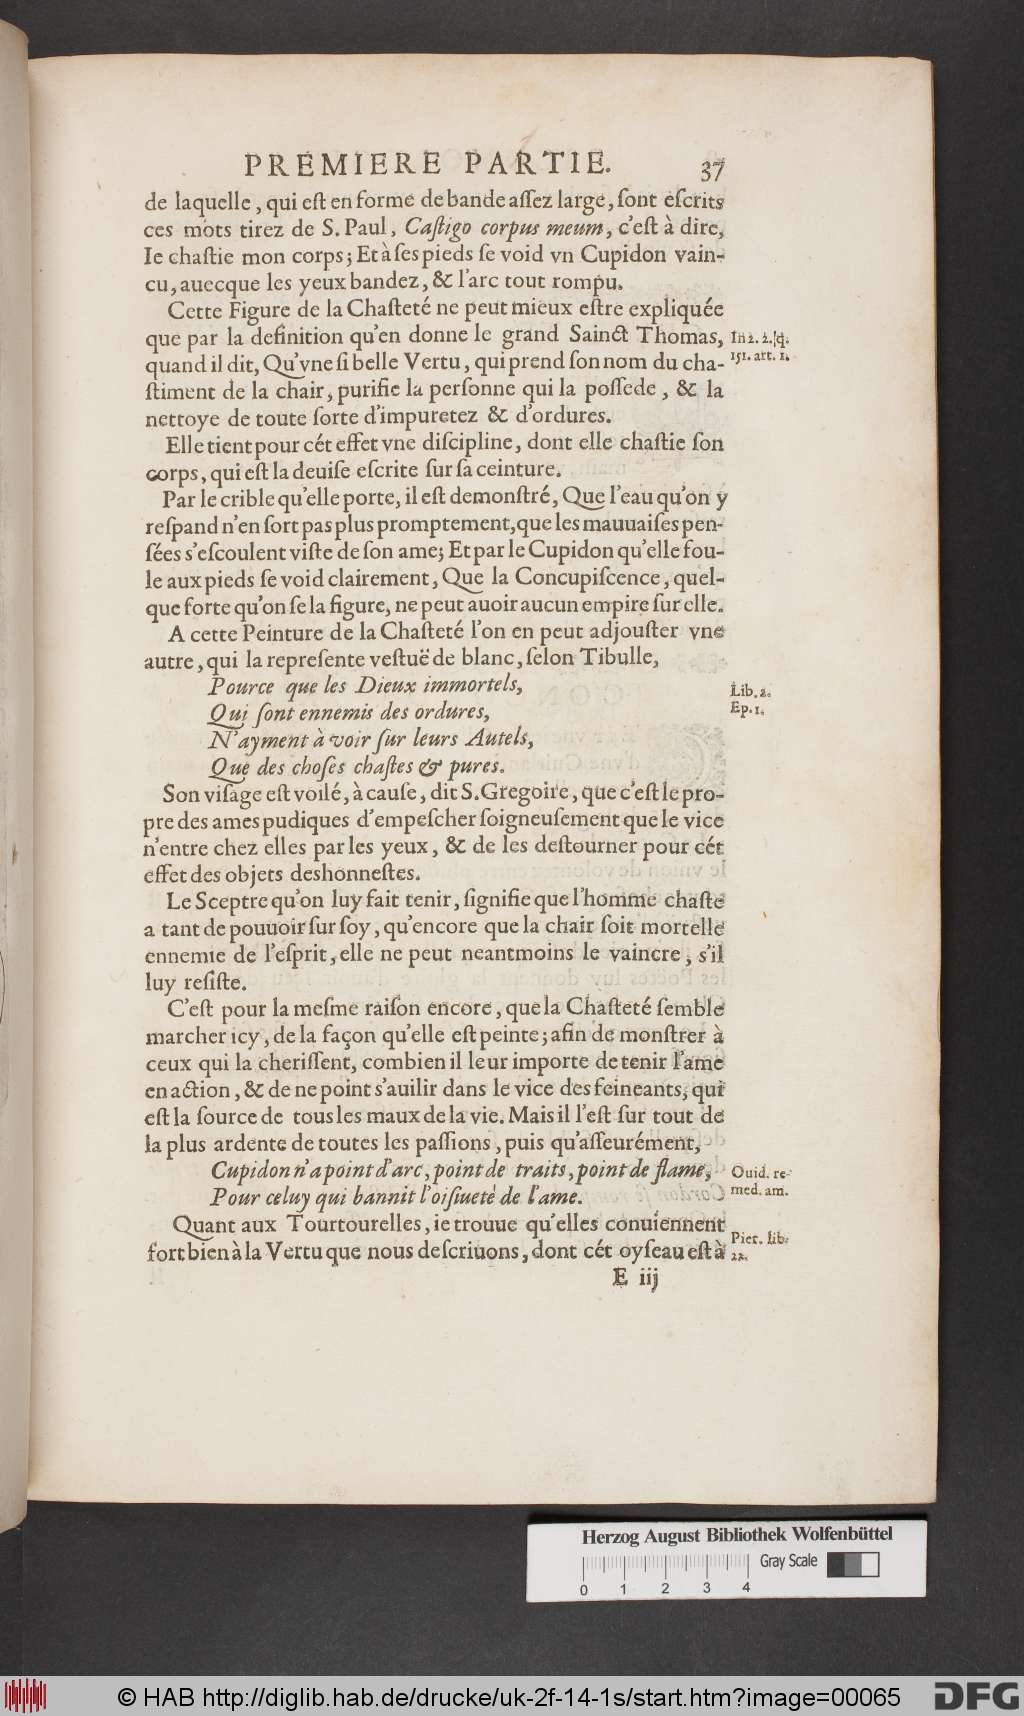 PREMIERE PARTIE. 37
de laquelle, qui eſt en forme de bande aſſez large, ſont eſcrits
ces mots tirez de S. Paul, Caſtigo corpus meum, c'eſt à dire,
Ie chaſtie mon corps; Et à ſes pieds ſe void vn Cupidon vain-
cu, auecque les yeux bandez, & l'arc tout rompu.
Cette Figure de la Chaſteté ne peut mieux eſtre expliquée
que par la definition qu'en donne le grand Sainct Thomas,
In 2. 2. q.
151. art. 1.
quand il dit, Qu'vne ſi belle Vertu, qui prend ſon nom du cha-
ſtiment de la chair, purifie la perſonne qui la poſſede, & la
nettoye de toute ſorte d'impuretez & d'ordures.
Elle tient pour cét effet vne diſcipline, dont elle chaſtie ſon
corps, qui eſt la deuiſe eſcrite ſur ſa ceinture.
Par le crible qu'elle porte, il eſt demonſtré, Que l'eau qu'on y
reſpand n'en ſort pas plus promptement, que les mauuaiſes pen-
ſées s'eſcoulent viſte de ſon ame; Et par le Cupidon qu'elle fou-
le aux pieds ſe void clairement, Que la Concupiſcence, quel-
que forte qu'on ſe la figure, ne peut auoir aucun empire ſur elle.
A cette Peinture de la Chaſteté l'on en peut adjouſter vne
autre, qui la repreſente veſtuë de blanc, ſelon Tibulle,
Pource que les Dieux immortels,
Lib. 2.
Ep. 1.
Qui ſont ennemis des ordures,
N'ayment à voir ſur leurs Autels,
Que des choſes chaſtes & pures.
Son viſage eſt voilé, à cauſe, dit S. Gregoire, que c'eſt le pro-
pre des ames pudiques d'empeſcher ſoigneuſement que le vice
n'entre chez elles par les yeux, & de les deſtourner pour cét
effet des objets deshonneſtes.
Le Sceptre qu'on luy fait tenir, ſignifie que l'homme chaſte
a tant de pouuoir ſur ſoy, qu'encore que la chair ſoit mortelle
ennemie de l'eſprit, elle ne peut neantmoins le vaincre, s'il
luy reſiſte.
C'eſt pour la meſme raiſon encore, que la Chaſteté ſemble
marcher icy, de la façon qu'elle eſt peinte; afin de monſtrer à
ceux qui la cheriſſent, combien il leur importe de tenir l'ame
en action, & de ne point s'auilir dans le vice des feineants, qui
eſt la ſource de tous les maux de la vie. Mais il l'eſt ſur tout de
la plus ardente de toutes les paſſions, puis qu'aſſeurément,
Cupidon n'a point d'arc, point de traits, point de flame,
Ouid. re-
med. am.
Pour celuy qui bannit l'oiſiueté de l'ame.
Quant aux Tourtourelles, ie trouue qu'elles conuiennent
fort bien à la Vertu que nous deſcriuons, dont cét oyſeau eſt à
Pier. lib.
22.
E iij
Herzog August Bibliothek Wolfenbüttel
Gray Scale
0 1 2 3 4
© HAB http://diglib.hab.de/drucke/uk-2f-14-1s/start.htm?image=00065
DFG